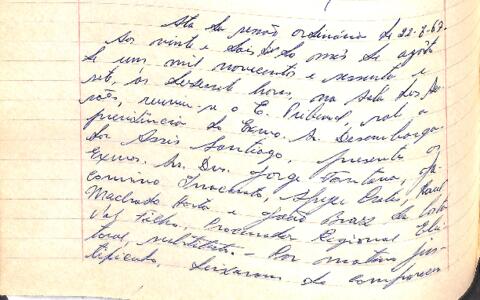 Ata da sessão ordinária de 22-8-67.
Aos vinte e dois do mês de agôsto
de um mil novecentos e sessenta e
sete, às dezesseis horas, na Sala das Ses-
sões, reuniu-se o E. Tribunal, sob a
presidência do Exmo. Sr. Desembarga-
dor Assis Santiago, presentes os
Exmos. Srs. Drs. Jorge Fontana,
Inocêncio, Raul
Machado Horta e João Braz da Costa
Val Filho, Procurador Regional Elei-
toral, substituto. - Por motivo jus-
tificado, deixaram de comparecer